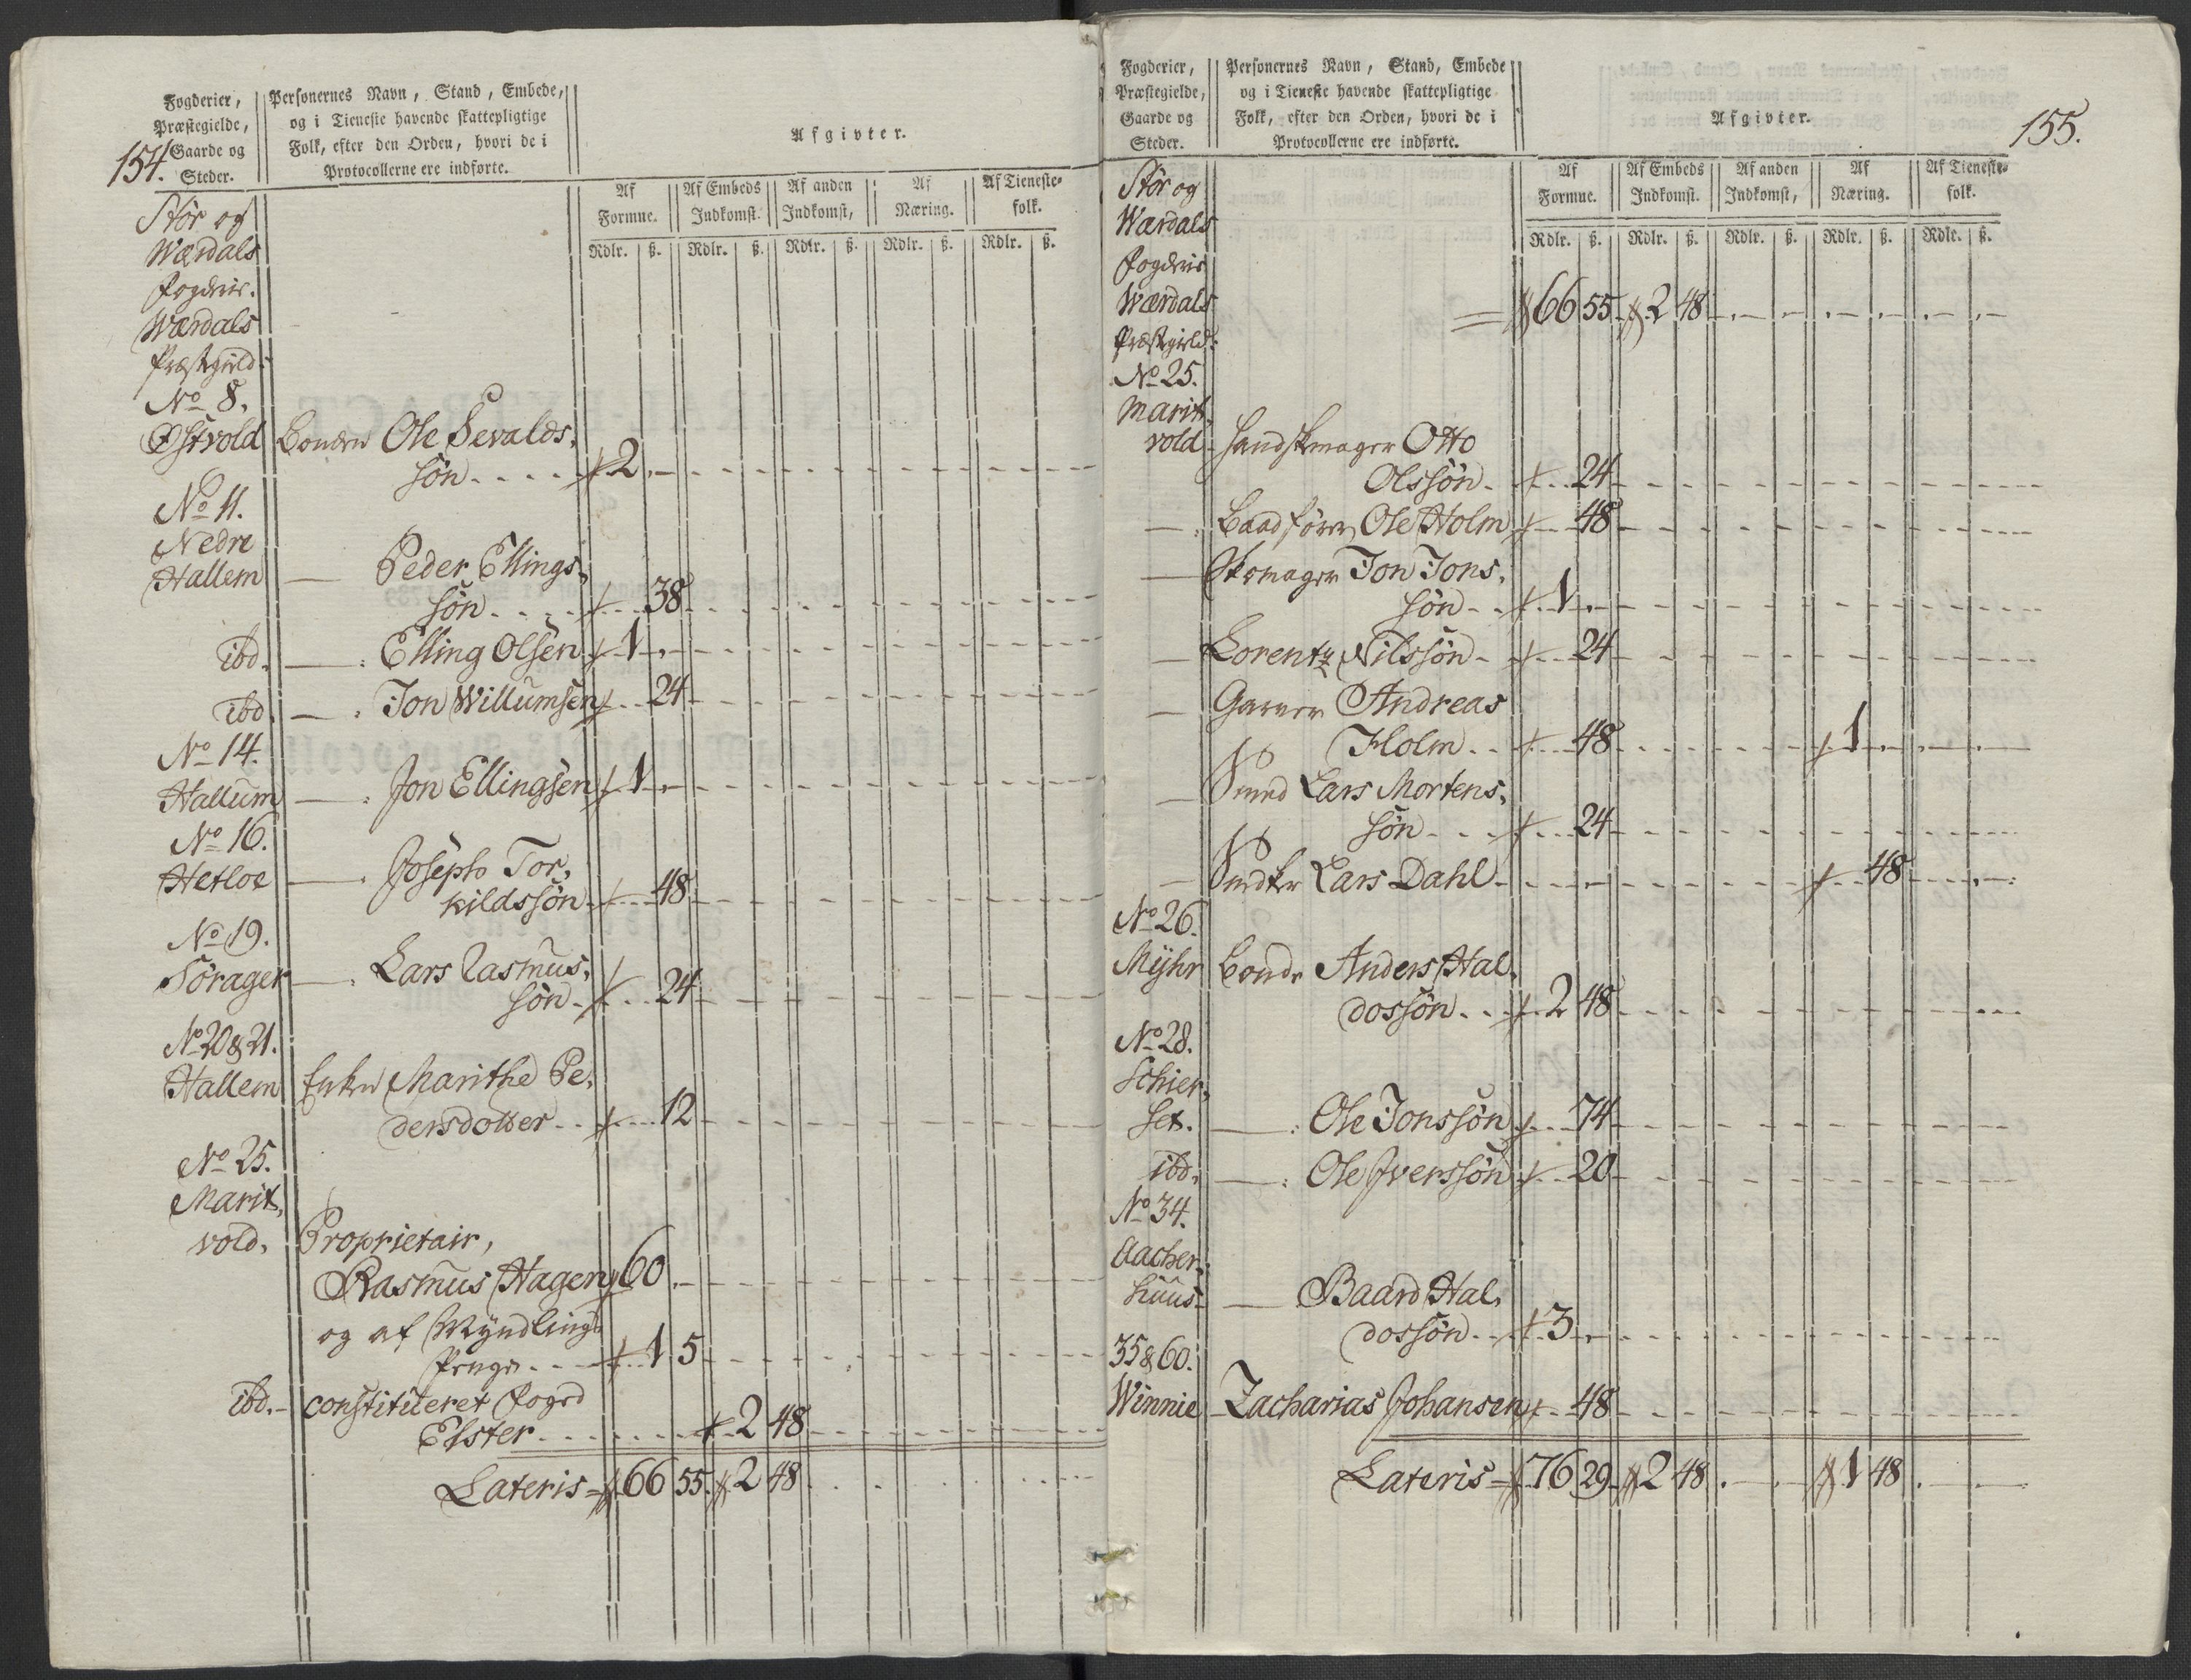 154.
Fogderier,
Præstegielde,
Gaarde og
Steder.
Personernes Navn, Stand, Embede,
og i Tieneste havende skattepligtige
Folk, efter den Orden, hvori de i
Protocollerne ere indførte.
Afgivter.
Af Formue. Af Embeds Indkomst. Af anden Indkomst, Af Næring. Af Tieneste-folk.
Rdlr. ß. Rdlr. ß. Rdlr. ß. Rdlr. ß. Rdlr. ß.
Stør og
Wærdals
Fogderie.
Wærdals
Præstegield:
No 8.
Østvold Bonden Ole Sevalds,
søn 2. -
No 11.
Nedre
Hallem — Peder Ellings,
søn 38
ibd. — Elling Olsen 1. -
ibd. — Jon Willumsen 24
No 14.
Hallum — Jon Ellingsen 1. -
No 16.
Hetloe — Joseph Tor,
kildssøn 48
No 19.
Sørager — Lars Rasmus,
søn 24
No 20 & 21.
Hallem Enken Marithe Pe,
dersdotter 12
No 25.
Marit,
vold. Proprietair,
Rasmus Hagen 60. -
og af Myndlings
Penge 1 5
ibd. - constitueret Foged
Elster 2 48
Lateris = 66 55. 2 48
155.
Fogderier,
Præstegielde,
Gaarde og
Steder.
Personernes Navn, Stand, Embede
og i Tieneste havende skattepligtige
Folk, efter den Orden, hvori de i
Protocollerne ere indførte.
Afgivter.
Af Formue. Af Embeds Indkomst. Af anden Indkomst, Af Næring. Af Tieneste-folk.
Rdlr. ß. Rdlr. ß. Rdlr. ß. Rdlr. ß. Rdlr. ß.
Stør og
Wærdals
Fogderie
Wærdals = 66 55 2 48
Præstegield:
No 25.
Marit,
vold - Handskemager Otto
Olssøn 24
— Baadfører Ole Holm 48
— Skomager Jon Jons,
søn 1. -
— Lorentz Nilssøn 24
— Garver Andreas
Holm 48 1. -
— Smed Lars Mortens,
søn 24
— Snedker Lars Dahl 48
No 26.
Myhr Bonde Anders Hal,
dossøn 2 48
No 28.
Schier,
set. — Ole Jonssøn 74
ibd. — Ole Iverssøn 20
No 34.
Aacher,
huus — Baard Hal,
dossøn 3. -
35 & 60.
Winnie - Zacharias Johansen 48
Lateris = 76 29. 2 48. 1 48